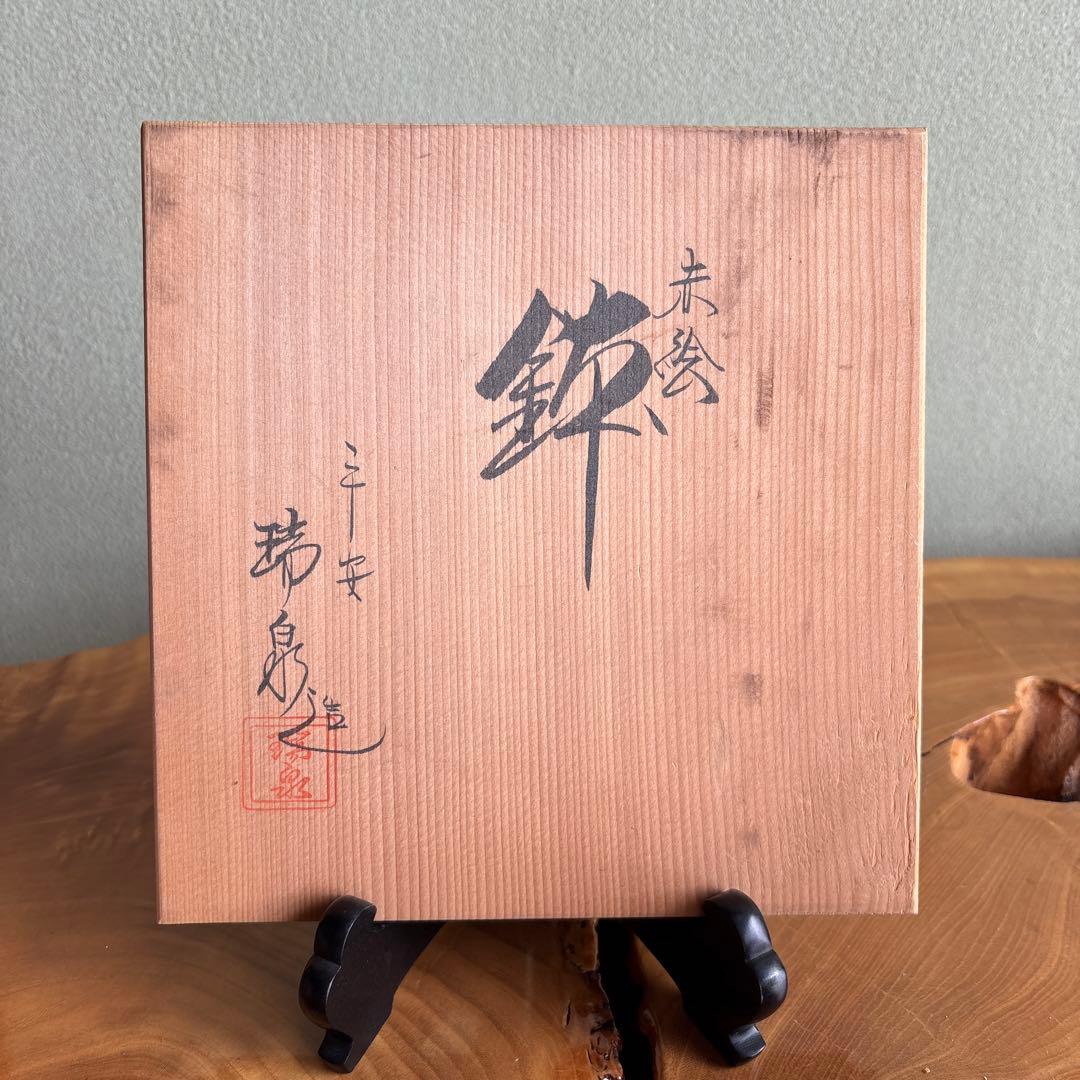 赤絵
鉢
平安
瑞泉造
瑞泉